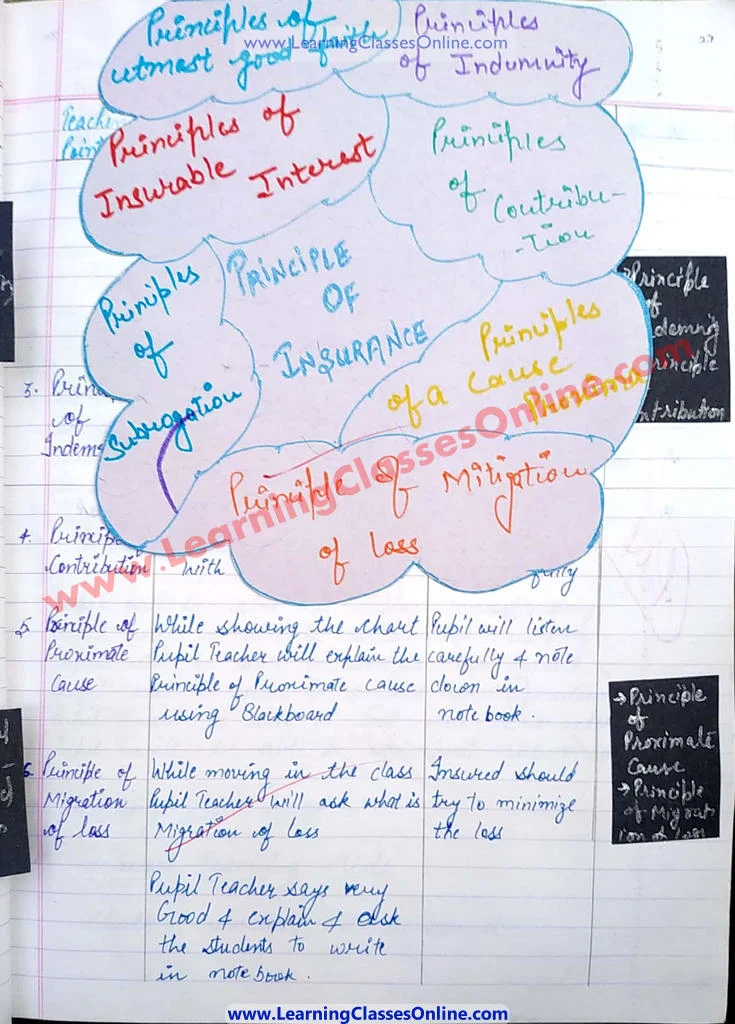 Principles of
utmast good faith
Principles
of Indumnity
www.LearningClassesOnline.com
27
Teacher
Point
Principles of
Insurable Interest
Principles
of
Contribu-
-tion
PRINCIPLE
OF
INSURANCE
Principles
of
Subrogation
Principles
of a cause
Proxima
Principle of Mitigation
of loss
Principle
of
demnig
rinciple
ntribution
www.LearningClassesOnline.com
3. Princ
of
Indem
4. Principl
Contribution
with
fully
5 Principle of
Proximate
cause
While showing the chart
Pupil Teacher will explain the
Principle of Proximate cause
using Blackboard
Pupil will listen
carefully & note
down in
note book.
→ Principle
of
Proximate
Cause
→ Principle
of Migrat
ion of loss
6. Principle of
Migration
of loss
While moving in the class
Pupil Teacher will ask what is
Migration of loss
Insured should
try to minimize
the loss
Pupil Teacher says very
Good & explain & ask
the students to write
in note book.
www.LearningClassesOnline.com